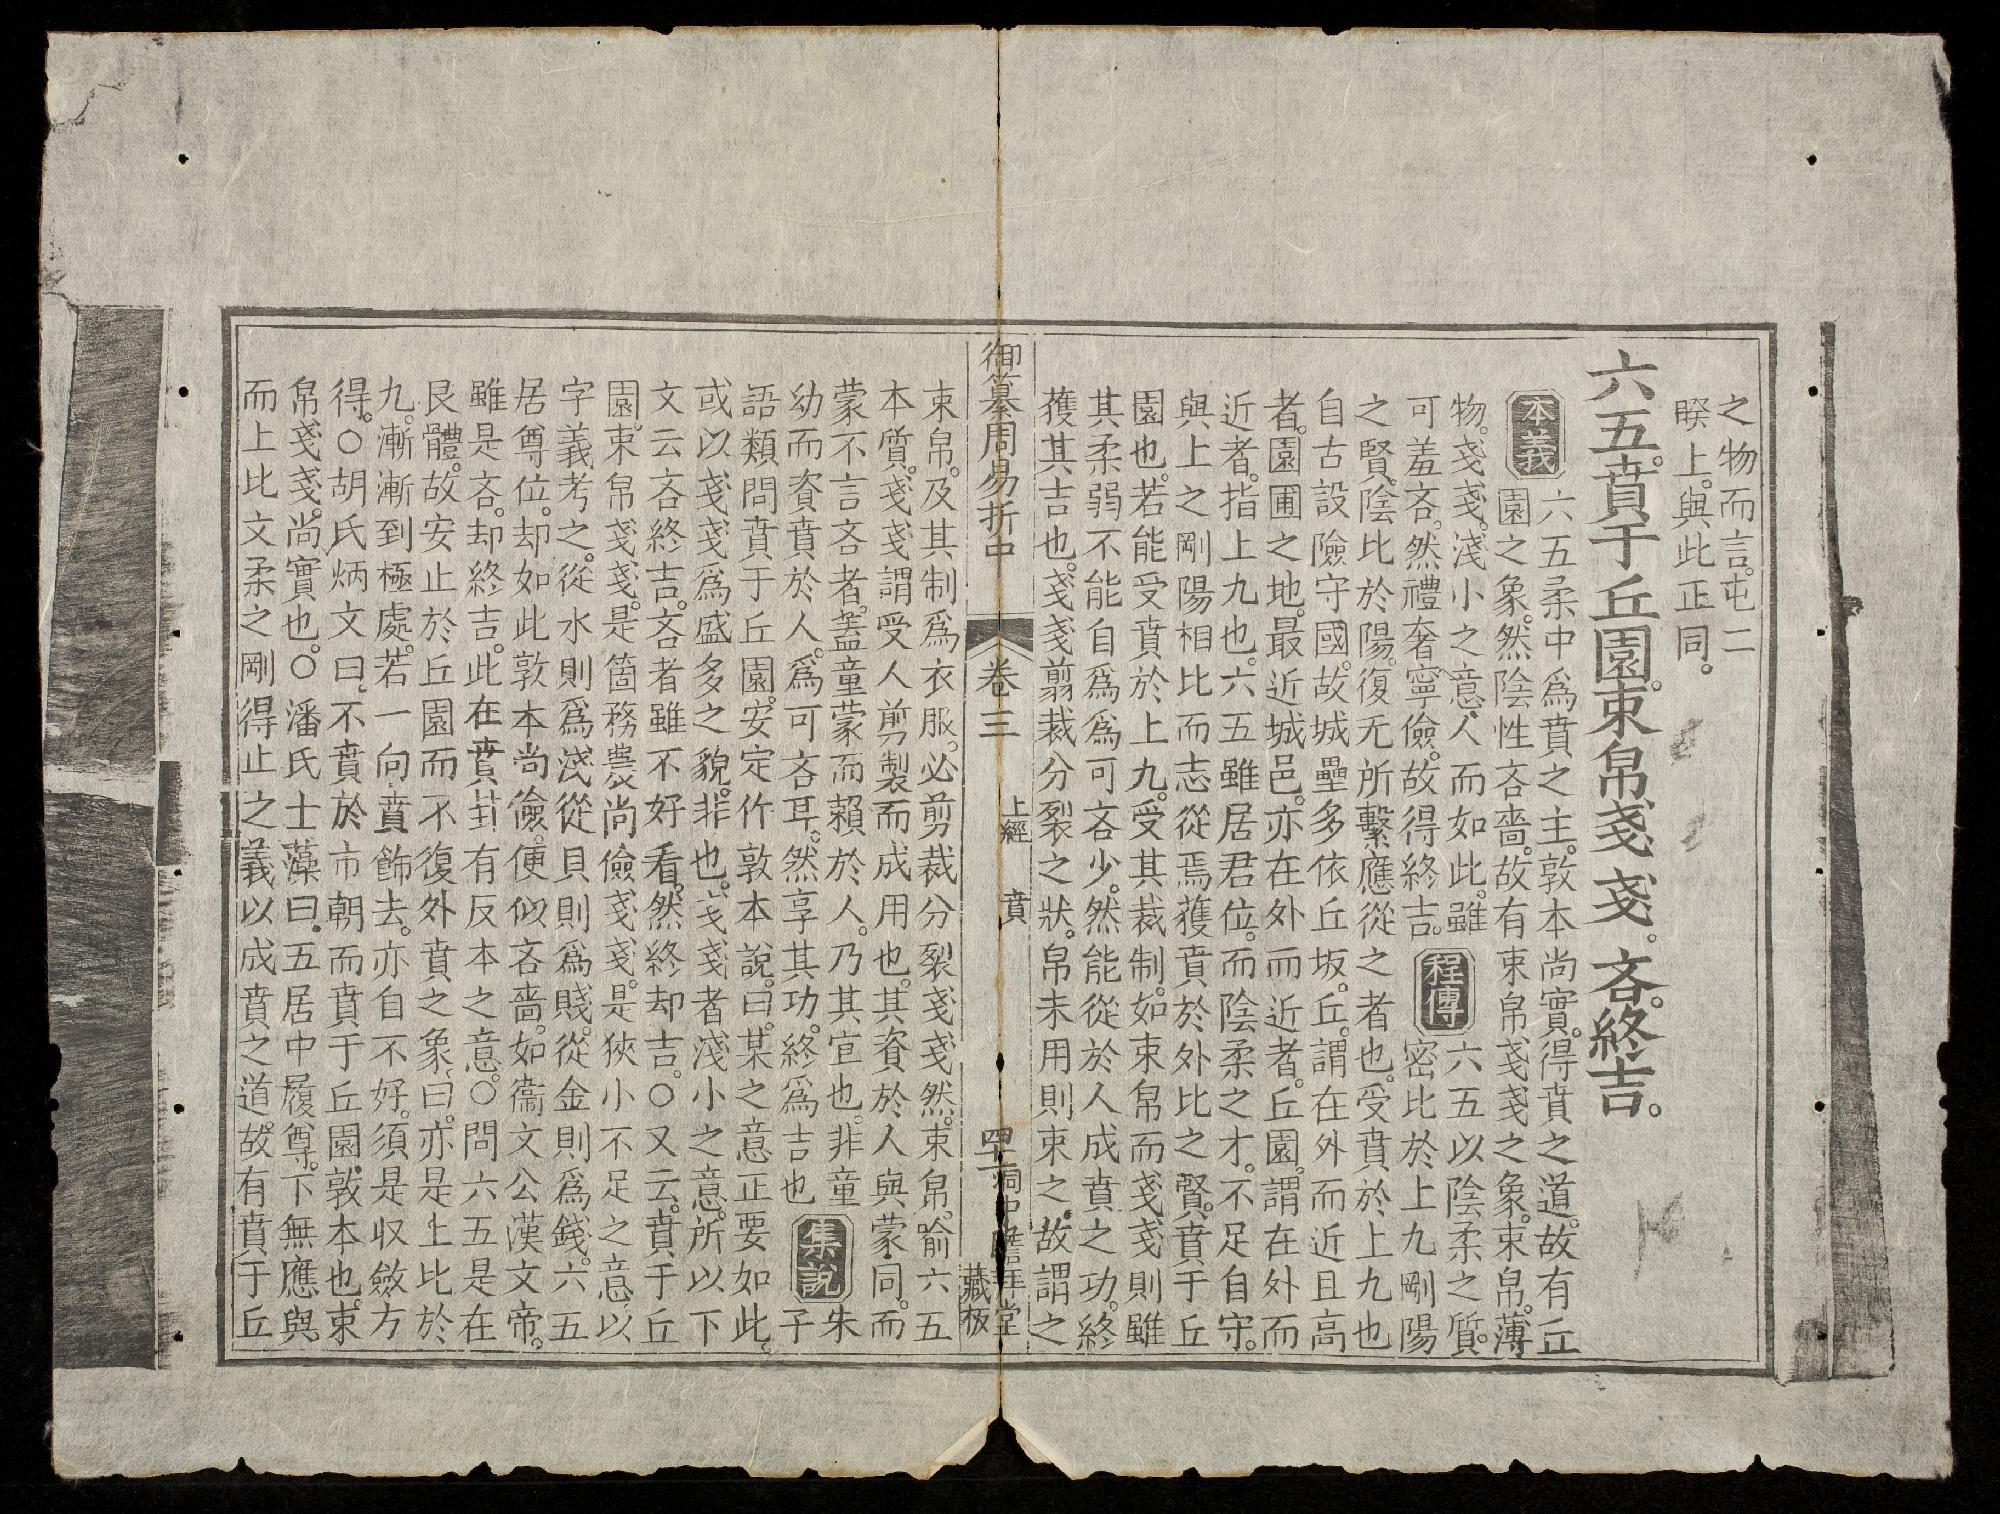 之物而言。屯二
睽上。與此正同。
六五。賁于丘園。束帛戔戔。吝。終吉。
本義 六五柔中。爲賁之主。敦本尚實。得賁之道。故有丘
園之象。然陰性吝嗇。故有束帛戔戔之象。束帛。薄
物。戔戔。淺小之意。人而如此。雖
可羞吝。然禮奢寧儉。故得終吉。 程傳 六五以陰柔之質。
密比於上九剛陽
之賢。陰比於陽。復无所繫應。從之者也。受賁於上九也
自古設險守國。故城壘多依丘坂。丘。謂在外而近且高
者。園圃之地。最近城邑。亦在外而近者。丘園。謂在外而
近者。指上九也。六五雖居君位。而陰柔之才。不足自守。
與上之剛陽相比而志從焉。獲賁於外比之賢。賁于丘
園也。若能受賁於上九。受其裁制。如束帛而戔戔。則雖
其柔弱不能自爲。爲可吝少。然能從於人。成賁之功。終
獲其吉也。戔戔。翦裁分裂之狀。帛未用則束之。故謂之
御纂周易折中 卷三 上經 賁 四一 堂藏板
束帛。及其制爲衣服。必剪裁分裂戔戔然。束帛。喻六五
本質。戔戔。謂受人剪製而成用也。其資於人與蒙同。而
蒙不言吝者。蓋童蒙而賴於人。乃其宜也。非童
幼而資賁於人。爲可吝耳。然享其功。終爲吉也 集說 朱
子
語類問賁于丘園。安定作敦本說。曰。某之意正要如此。
或以戔戔爲盛多之貌。非也。戔戔者淺小之意。所以下
文云吝終吉。吝者雖不好看。然終却吉。○又云。賁于丘
園。束帛戔戔。是箇務農尚儉。戔戔。是狹小不足之意。以
字義考之。從水則爲淺。從貝則爲賤。從金則爲錢。六五
居尊位。却如此敦本尚儉。便似吝嗇。如衞文公漢文帝。
雖是吝。却終吉。此在賁卦有反本之意。○問六五是在
艮體。故安止於丘園。而不復外賁之象。曰。亦是上比於
九。漸漸到極處。若一向賁飾去。亦自不好。須是收斂方
得。○胡氏炳文曰。不賁於市朝而賁于丘園。敦本也。束
帛戔戔。尚實也。○潘氏士藻曰。五居中履尊。下無應與。
而上比文柔之剛。得止之義以成賁之道。故有賁于丘